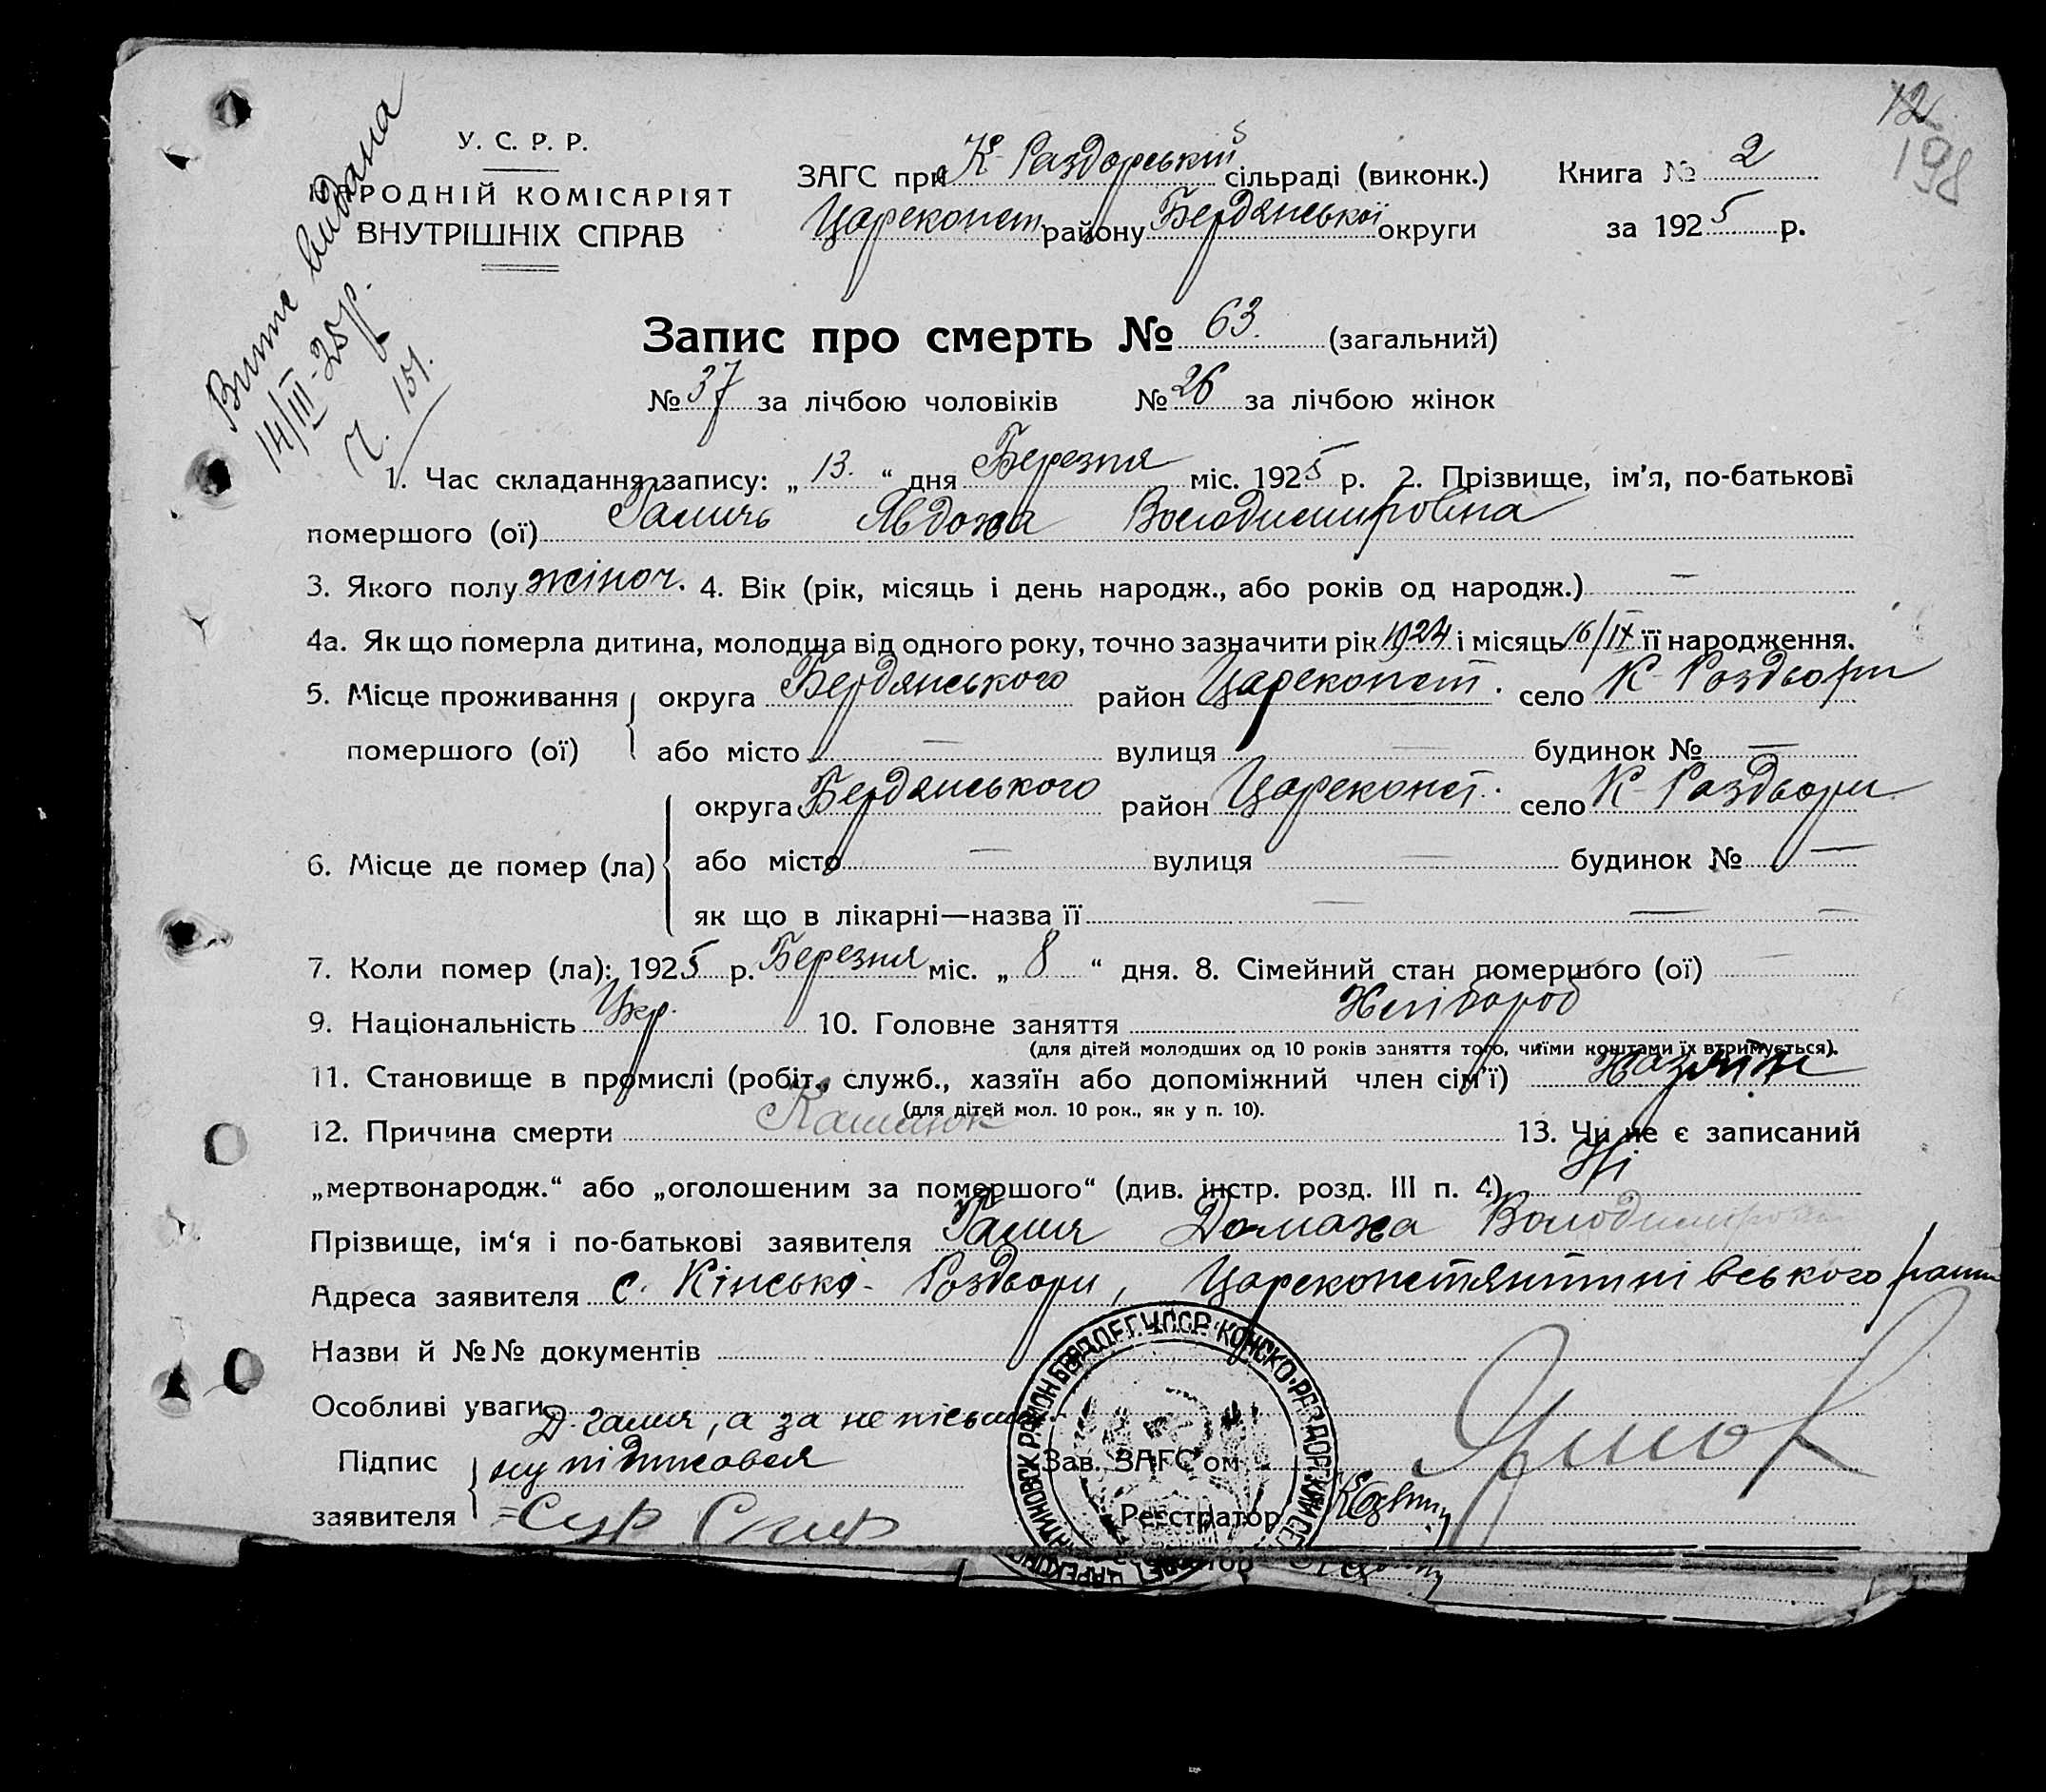 12
198
Витяг видана
14/III-25 р.
Ч. 151.
У. С. Р. Р.
НАРОДНІЙ КОМІСАРІЯТ
ВНУТРІШНІХ СПРАВ
ЗАГС при К-Раздорській сільраді (виконк.)
Царекопст. району Бердянської округи
Книга № 2
за 1925 р.
Запис про смерть № 63. (загальний)
№ 37 за лічбою чоловіків № 26 за лічбою жінок
1. Час складання запису: „ 13. “ дня Березня міс. 1925 р. 2. Прізвище, ім’я, по-батькові
помершого (ої) Явдоха Володимировна
3. Якого полу жіноч. 4. Вік (рік, місяць і день народж., або років од народж.) —
4а. Як що померла дитина, молодша від одного року, точно зазначити рік 1924 і місяць 16/IX її народження.
5. Місце проживання округа Бердянського район Цареконст. село К-Роздори
помершого (ої) або місто — вулиця — будинок № —
6. Місце де помер (ла) округа Бердянського район Цареконст. село К-Раздори
або місто — вулиця — будинок № —
як що в лікарні—назва її — — —
7. Коли помер (ла): 1925 р. Березня міс. „ 8 “ дня. 8. Сімейний стан помершого (ої) —
9. Національність Укр. 10. Головне заняття Хлібороб
(для дітей молодших од 10 років заняття того, чиїми коштами їх втримується).
11. Становище в промислі (робіт., служб., хазяїн або допоміжний член сім’ї) Хазяїн
(для дітей мол. 10 рок., як у п. 10).
12. Причина смерти Кашлюк 13. Чи не є записаний
„мертвонародж.“ або „оголошеним за помершого“ (див. інстр. розд. III п. 4) Ні
Прізвище, ім‘я і по-батькові заявителя Домаха Володимировна
Адреса заявителя с. Кінські-Роздори, Царекопстянтинівського
Назви й №№ документів
Особливі уваги
Підпис заявителя
а за неписьмен.
ну підписався
Зав. ЗАГС‘ом
Реєстратор